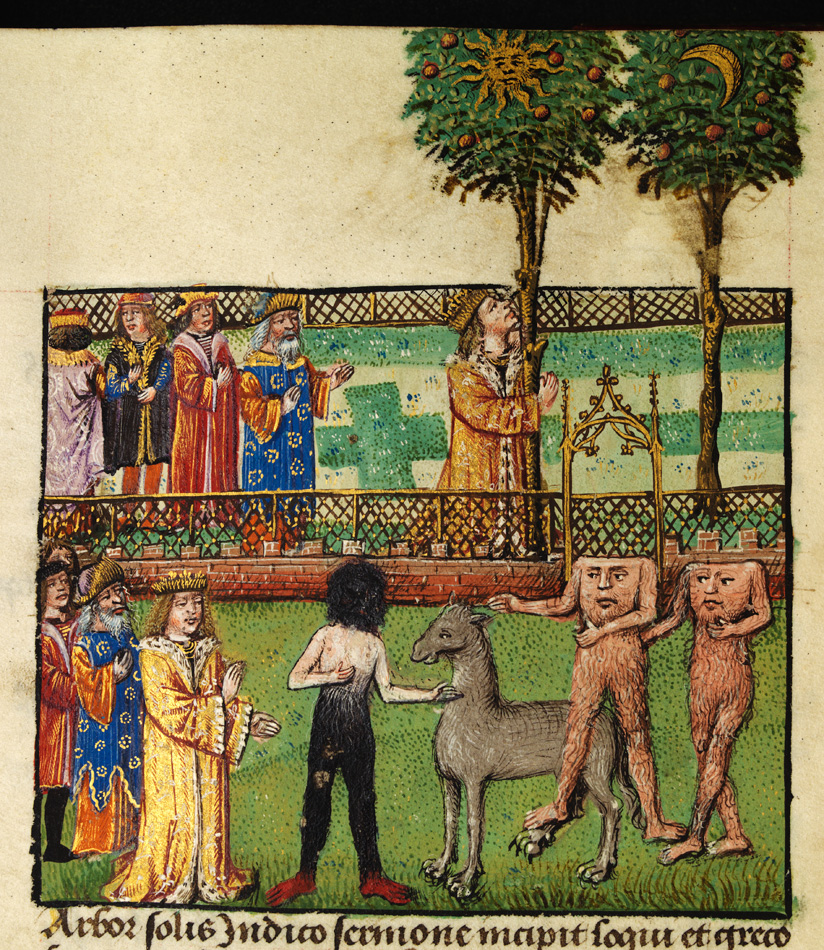 Arbor solis Indico sermone incipit loqui et greco